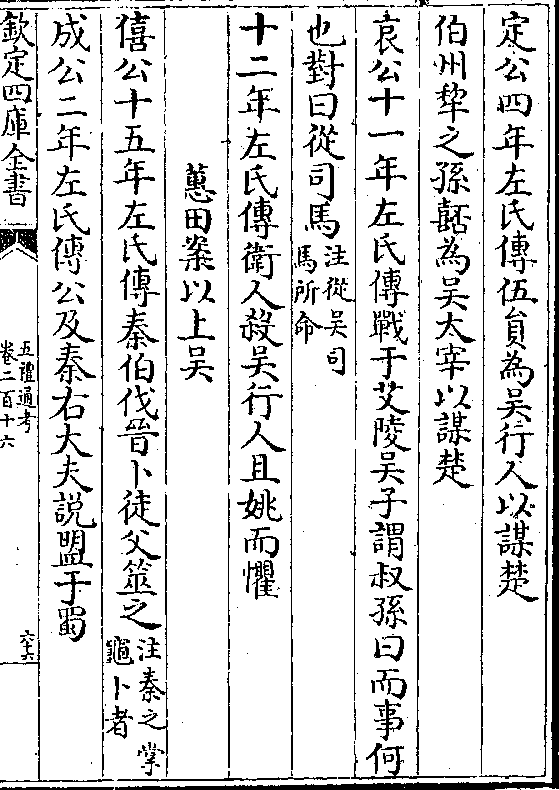 定公四年左氏傳伍員為吴行人以謀楚
伯州犂之孫嚭為吴太宰以謀楚
哀公十一年左氏傳戰于艾陵吴子謂叔孫曰而事何
也對曰從司馬注從吴司馬所命
十二年左氏傳衛人殺吴行人且姚而懼
蕙田案以上吴
僖公十五年左氏傳秦伯伐晉卜徒父筮之注秦之掌龜卜者
成公二年左氏傳公及秦右大夫説盟于蜀
欽定四庫全書
五禮通考
卷二百十六
六六